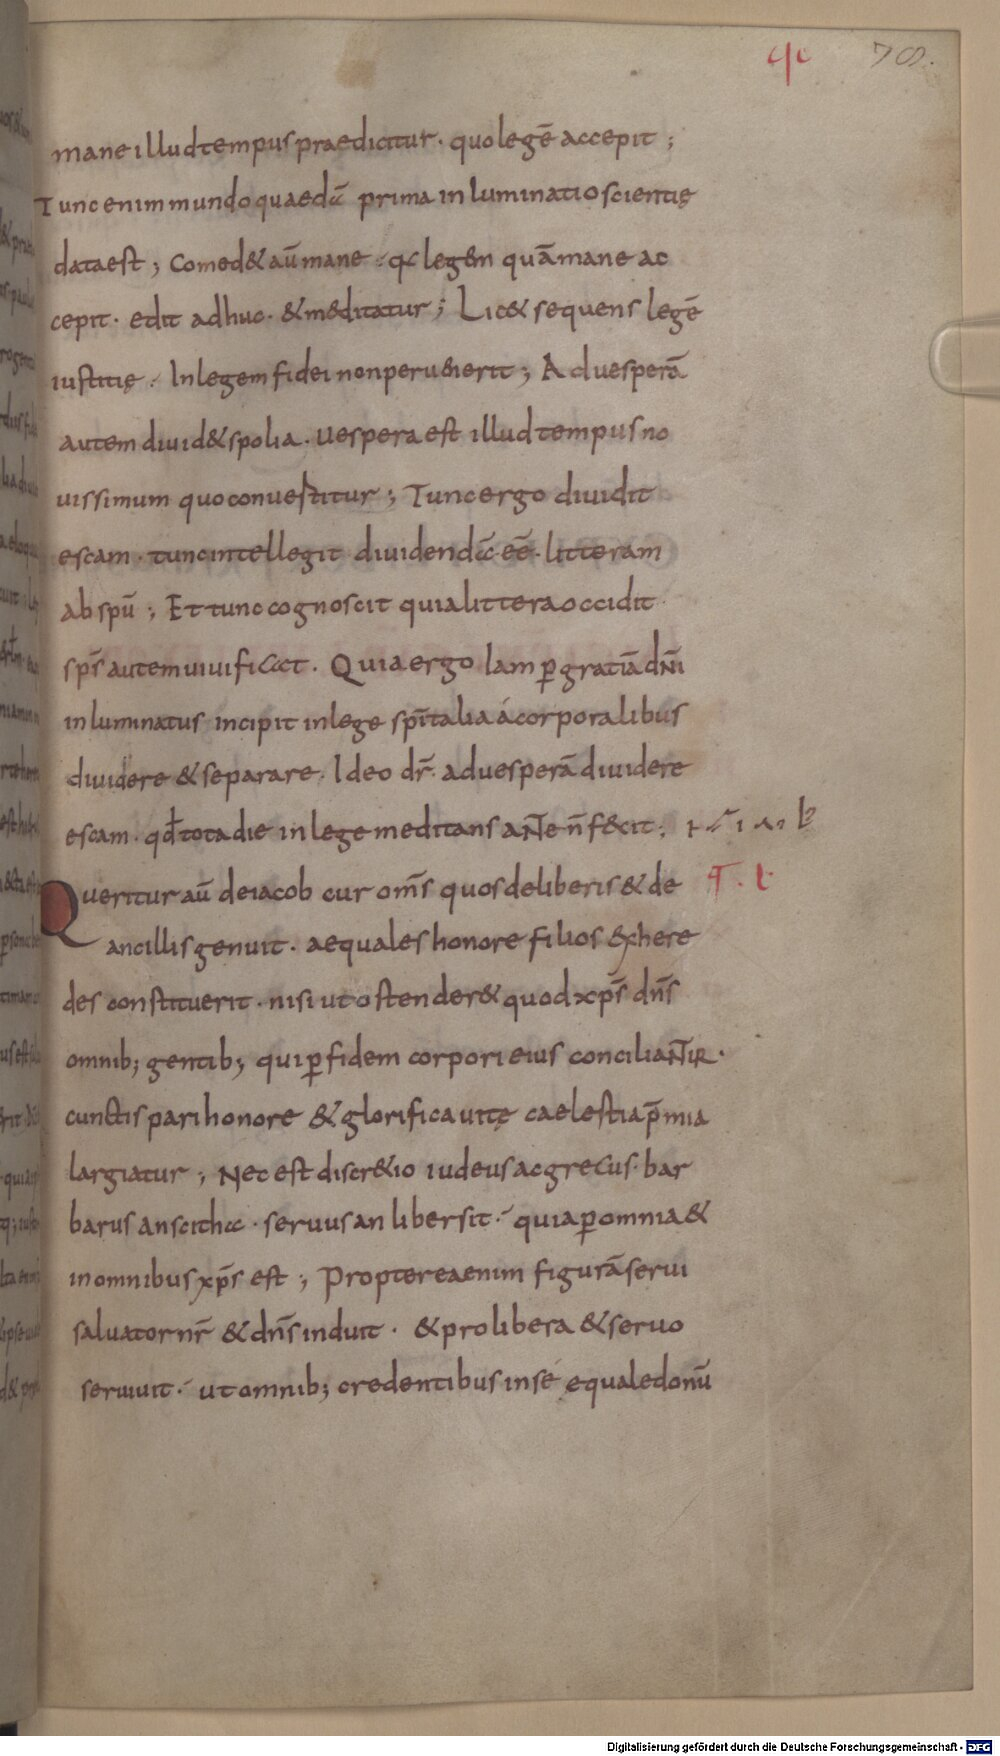 78.
mane illud tempus praedicitur · quo legē accepit ;
Tunc enim mundo quaedā prima inluminatio scientię
data est ; Comed& aū mane · quia legem quā mane ac
cepit · edit adhuc · & meditatur ; Lic& sequens legē
iustitię · In legem fidei non peruenerit ; Ad uesperā
autem diuid& spolia · uespera est illud tempus no
uissimum quo conuestitur ; Tunc ergo diuidit
escam · tunc intellegit diuidendā eē · litteram
ab spū ; Et tunc cognoscit quia littera occidit
sps̄ autem uiuificat · Quia ergo Iam ꝑ gratiā dn̄i
inluminatus incipit in lege spīitalia á corporalibus
diuidere & separare · Ideo dr̄ · ad uesperā diuidere
escam · qđ tota die in lege meditans ante n̄ fecit ;
Queritur aū de iacob cur om̄s quos de liberis & de
ancillis genuit · aequales honore filios & here
des constituerit · nisi ut ostender& quod xp̄s dn̄s
omnib; gentib; qui ꝑ fidem corpori eius conciliantur ·
cunctis pari honore & glorifica uitę caelestia p̄mia
largiatur ; Nec est discr&io iudeus ac grecus · bar
barus an scitha · seruus an liber sit · quia ꝑ omnia &
in omnibus xp̄s est ; Propterea enim figurā serui
saluator nr̄ & dn̄s induit · & pro libera & seruo
seruiuit · ut omnib; credentibus in sé ęquale donū
Digitalisierung gefördert durch die Deutsche Forschungsgemeinschaft - DFG